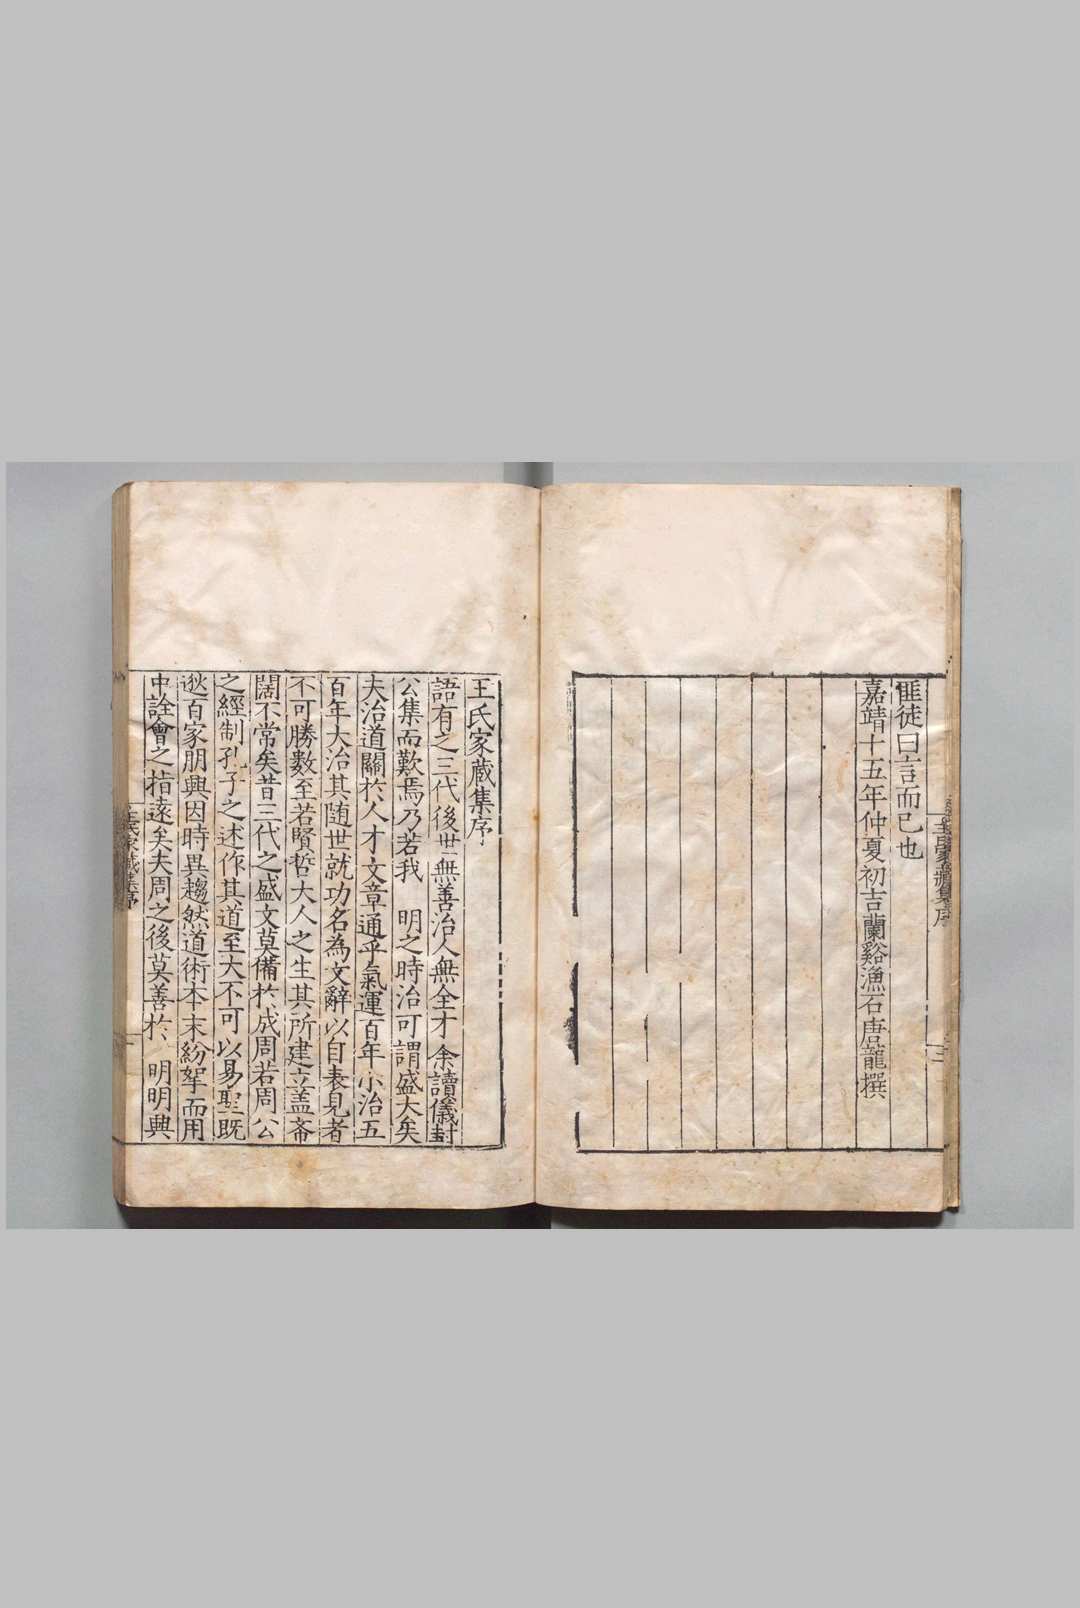 匪徒曰言而已也
嘉靖十五年仲夏初吉蘭谿漁石唐龍撰
王氏家藏集序
語有之三代後世無善治人無全才余讀儀封
公集而歎焉乃若我 明之時治可謂盛大矣
夫治道關於人才文章通乎氣運百年小治五
百年大治其随世就功名為文辭以自表見者
不可勝數至若賢哲大人之生其所建立盖斋
闊不常矣昔三代之盛文莫備於成周若周公
之經制孔子之述作其道至大不可以易聖既
逖百家朋興因時異趨然道術本末紛挐而用
中詮會之指遠矣夫周之後莫善於 明明興